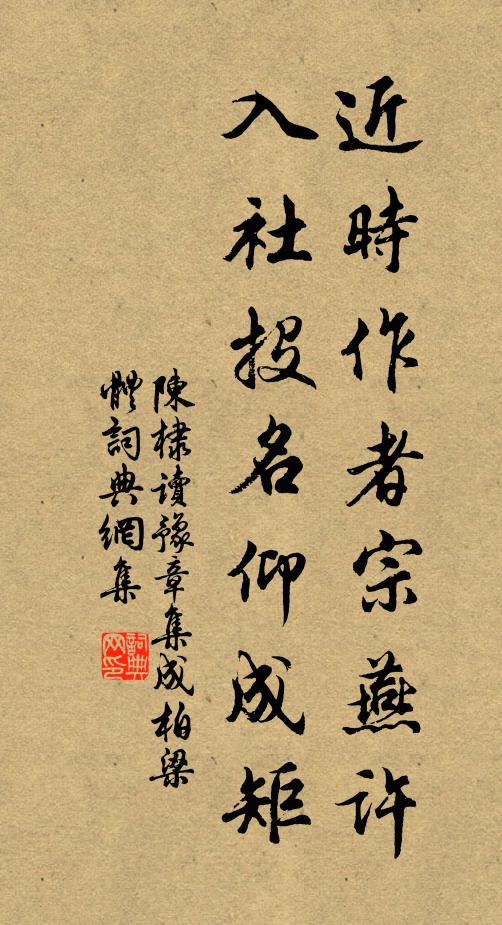 近時作者宗燕許
入社投名仰成矩
陳棣讀豫章集成柏梁
體詞典網集
詞典网印